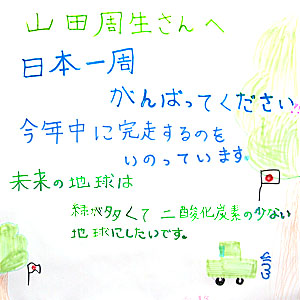 山田周生さんへ
日本一周
がんばってください!!
今年中に完走するのを
いのっています。
未来の地球は
緑が多くて二酸化炭素の少ない
地球にしたいです。